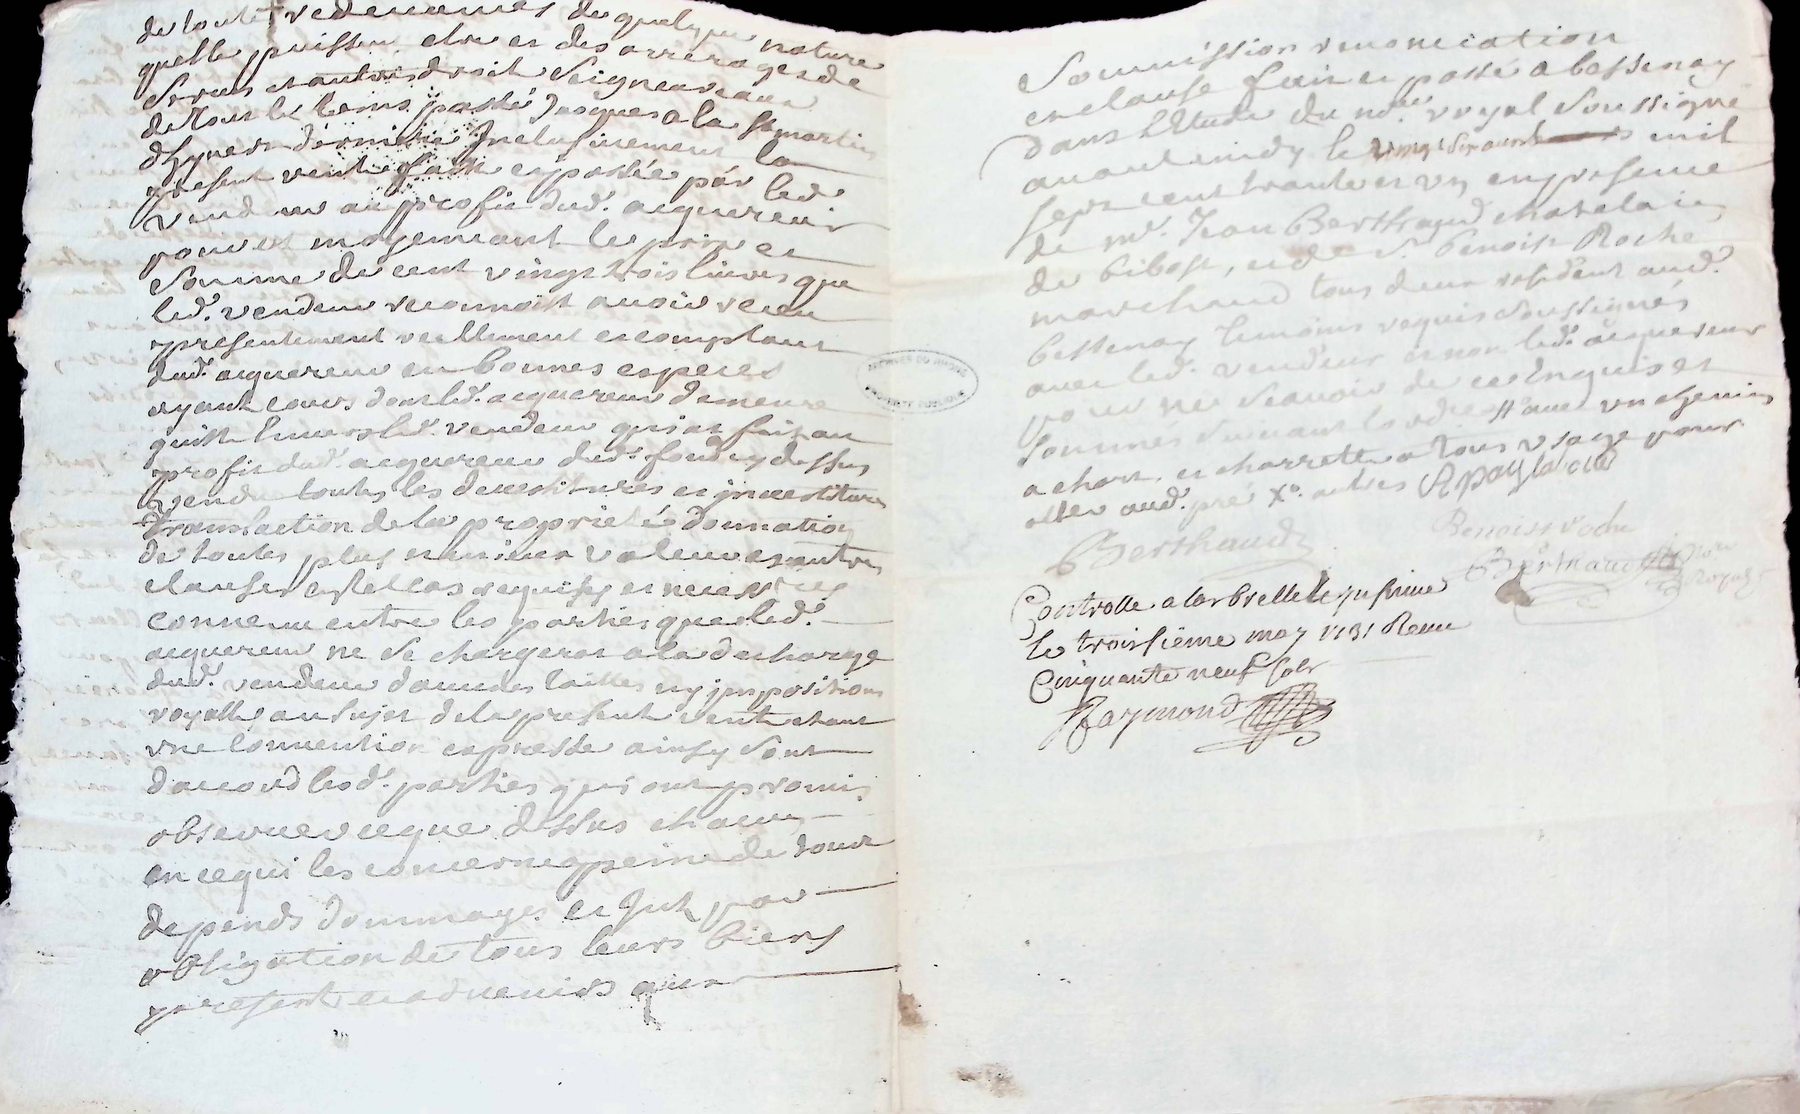 de toute redevances de quelque nature
quelle puissen etre et des arrerages de
servis et autres droit seigneuriaux
de tout le tems passé jusques a la St martin
dhyvert derniere Inclusivement la
present vente faite et passée par led.
vendeur au profit dud. acquereur
pour et moyennant le prix et
somme de cent vingt trois livres que
led. vendeur reconnoit avoir receu
presentement reellement et comptant
dud. acquereur en bonnes especes
ayant cours dont led. acquereur demeure
quitte Envers led. vendeur qui at fait au
profit dud. acquereur dud. fond cy dessus
vendu toutes les devestitures et investitures
translaction de la proprieté donnation
de toutes plus ou mins valeur et autres
clauses requises et necess
convenu entre les parties que led.
acquereur ne se chargerat a la decharge
dud. vendeur daucunes tailles ny impositions
royalles au sujet de la present vente etant
une convention expresse ainsy sont
daccord lesd. parties qui ont promis
observer ce que dessus chacun
en ce qui les concerne a peine de tous
depends dommages et Int par
obligation de tous leurs biens
present et advenirs
Soumission renonciation
et clause fait et passé a bessenay
dans L'Etude du no.re royal soussigné
avant midy le vingt six avril mil
sept cent trante et un en presence
de m.e Jean Berthaud chatelain
de bibost, et de s. benoist Roche
marchand tous deux resident aud.
bessenay temoins requis soussignés
avec led. vendeur et non led. acquereur
pour ne scavoir de ce Enquis et
sommés suivant lord. avec un chemin
a chart et charrette a tous usage pour
aller aud. pré
Berthaud
Benoist roche
Berthaud
Controlle a larbrelle
le troisieme may 1731 Receu
Cinquante neuf sols
Raymond